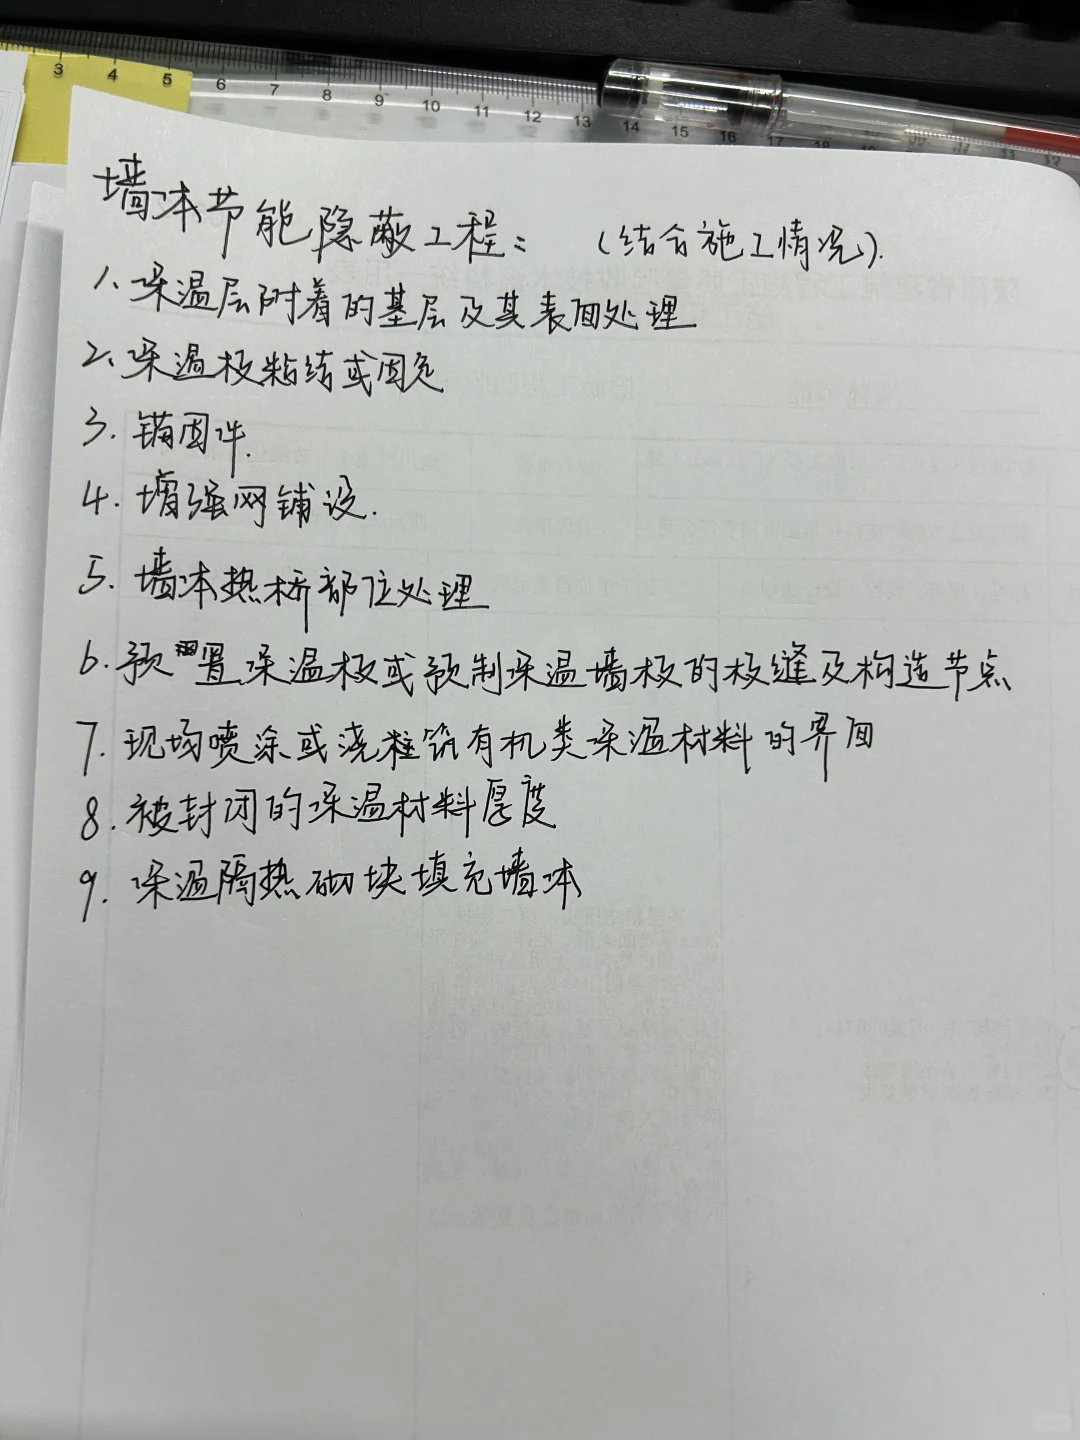 3 4 5 6 7 8 9 10 11 12 13 14 15 16 17 18
墙体节能隐蔽工程: (结合施工情况).
1、保温层附着的基层及其表面处理
2、保温板粘结或固定
3. 锚固件.
4. 增强网铺设.
5. 墙体热桥部位处理
6. 预置保温板或预制保温墙板的板缝及构造节点
7. 现场喷涂或浇注筑有机类保温材料的界面
8. 被封闭的保温材料厚度
9. 保温隔热砌块填充墙体